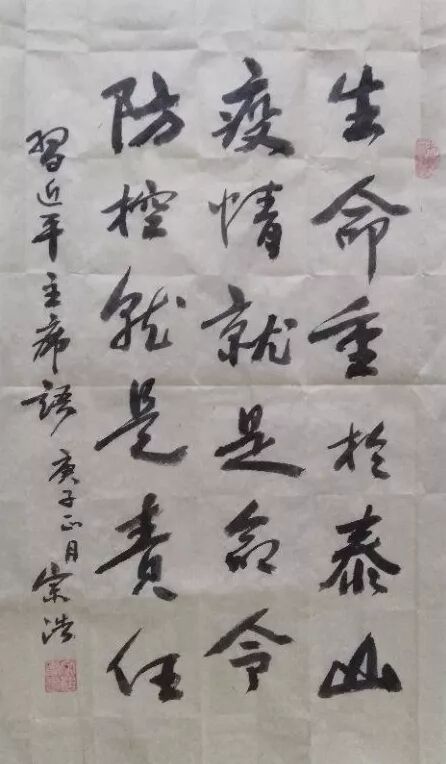 生命重於泰山
疫情就是命令
防控就是責任
習近平主席語 庚子正月 宗浩